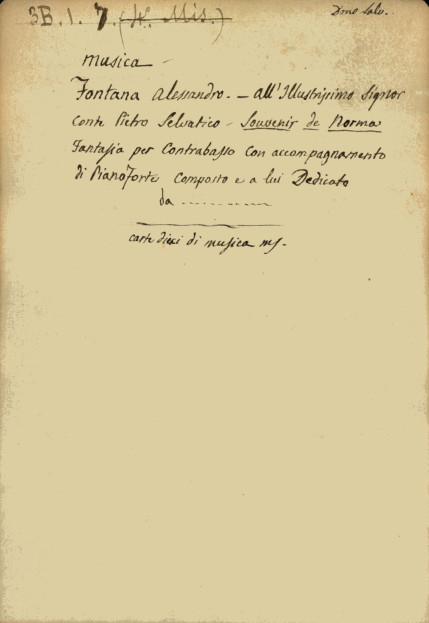 3B.1.7. (4. Mis.)
Dono Salv.
Musica -
Fontana Alessandro. - all'Illustrissimo Signor
Conte Pietro Selvatico - Souvenir de Norma
Fantasia per Contrabasso con accompagnamento
di PianoForte Composto e a lui Dedicato
da - - - - - - - -
carte dieci di musica ms.